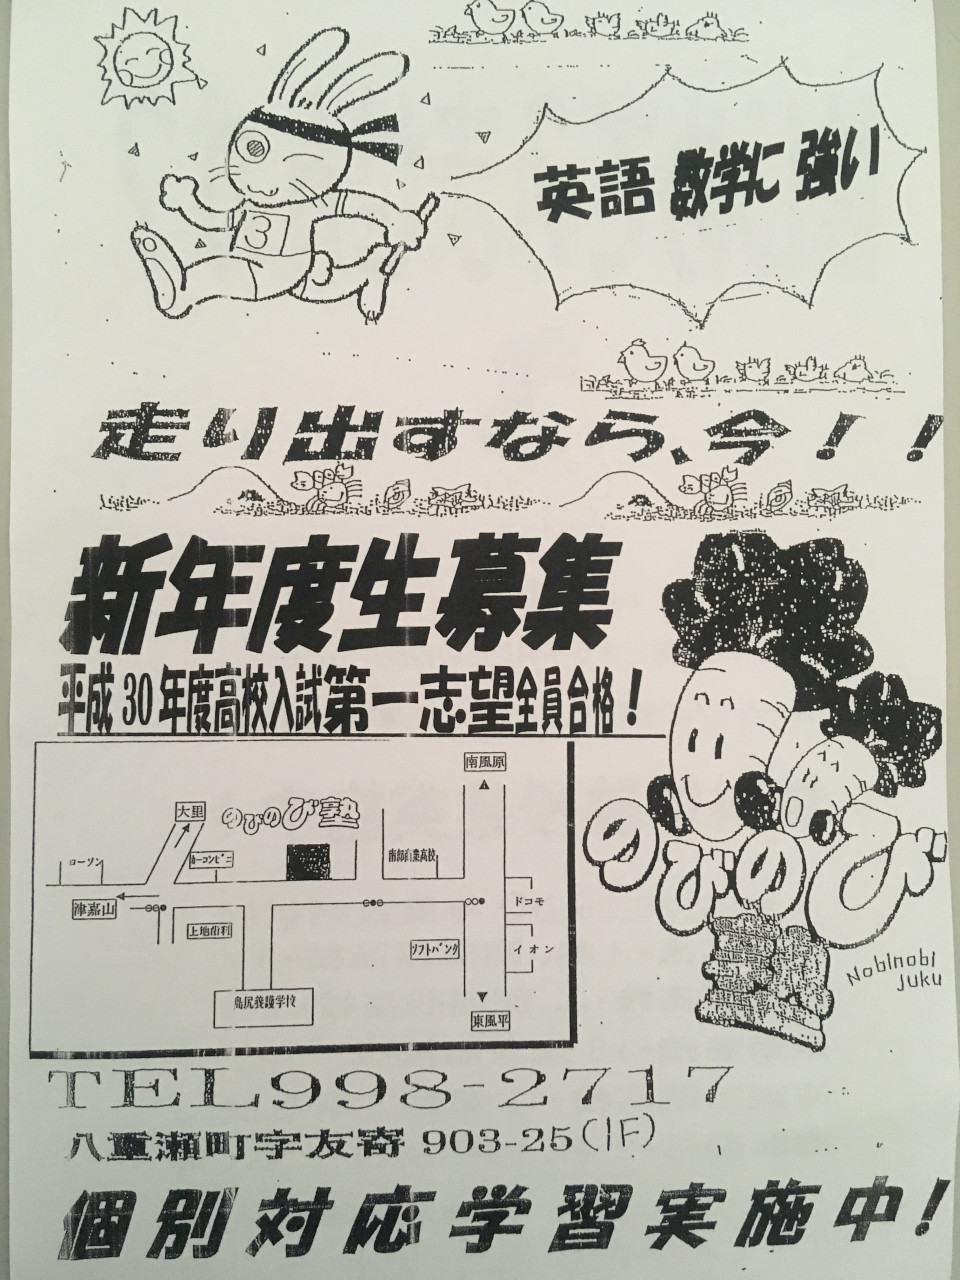 英語 数学に 強い
3
走り出すなら、今！！
新年度生募集
平成30年度高校入試第一志望全員合格！
南風原
大里
のびのび塾
ローソン
南部商業高校
津嘉山
ドコモ
上地歯科
ソフトバンク
イオン
島尻養護学校
東風平
のびのび
Nobinobi
juku
TEL998-2717
八重瀬町字友寄 903-25(1F)
個別対応学習実施中！